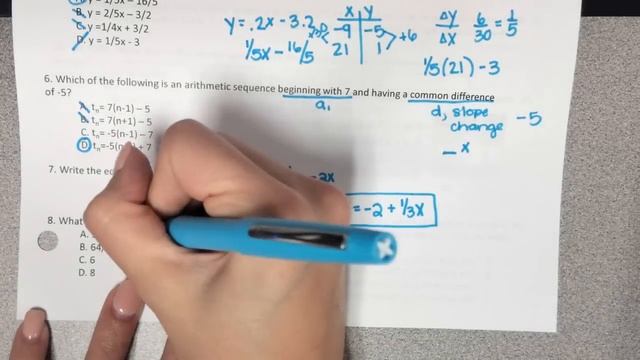 y = 1/5x - 16/5
B. y = 2/5x - 3/2
C. y =1/4x + 3/2
D. y = 1/5x - 3
y = .2x - 3.2
1/5x - 16/5
x y
-9 -5
21 1
+6
ΔY 6 = 1
ΔX 30 5
1/5(21) - 3
6. Which of the following is an arithmetic sequence beginning with 7 and having a common difference
of -5?
a₁
d, slope
change
-5
- x
A. tₙ= 7(n-1) – 5
B. tₙ= 7(n+1) – 5
C. tₙ= -5(n-1) – 7
D. tₙ=-5(n + 7
7. Write the
-2x
= -2 + 1/3x
8. What
A.
B. 64,
C. 6
D. 8